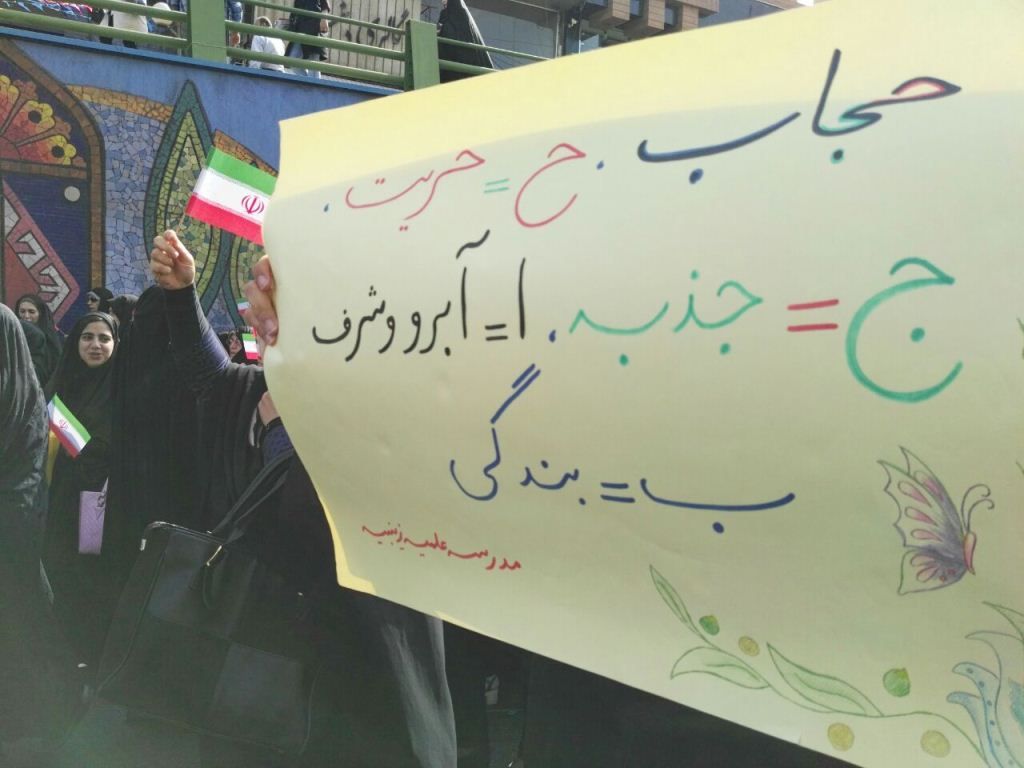 حجاب
ح = حریت .
ج = جذبه . ا = آبرو و شرف
ب = بندگی
مدرسه علمیه زینبیه